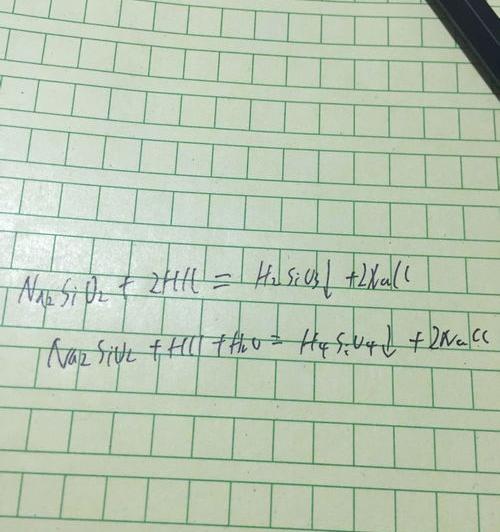 Na2SiO2 + 2HCl = H2SiO3↓ + 2NaCl
Na2SiO2 + HCl + H2O = H4SiO4↓ + 2NaCl